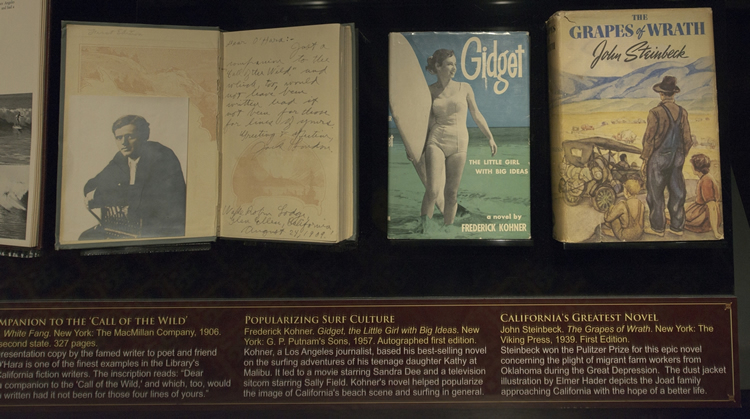 Dear O'Hara:-
Just a
companion to the
"Call of the Wild" and
which, too, would
not have been
written had it
not been for those
four lines of yours.
Jack London
Wake Robin Lodge,
Glen Ellen, California
August
Gidget
THE LITTLE GIRL
WITH BIG IDEAS
a novel by
FREDERICK KOHNER
THE
GRAPES of WRATH
John Steinbeck
MPANION TO THE 'CALL OF THE WILD'
White Fang. New York: The MacMillan Company, 1906.
second state. 327 pages.
resentation copy by the famed writer to poet and friend
O'Hara is one of the finest examples in the Library's
California fiction writers. The inscription reads: "Dear
a companion to the 'Call of the Wild,' and which, too, would
n written had it not been for those four lines of yours."
POPULARIZING SURF CULTURE
Frederick Kohner. Gidget, the Little Girl with Big Ideas. New
York: G. P. Putnam's Sons, 1957. Autographed first edition.
Kohner, a Los Angeles journalist, based his best-selling novel
on the surfing adventures of his teenage daughter Kathy at
Malibu. It led to a movie starring Sandra Dee and a television
sitcom starring Sally Field. Kohner's novel helped popularize
the image of California's beach scene and surfing in general.
CALIFORNIA'S GREATEST NOVEL
John Steinbeck, The Grapes of Wrath. New York: The
Viking Press, 1939. First Edition.
Steinbeck won the Pulitzer Prize for this epic novel
concerning the plight of migrant farm workers from
Oklahoma during the Great Depression. The dust jacket
illustration by Elmer Hader depicts the Joad family
approaching California with the hope of a better life.